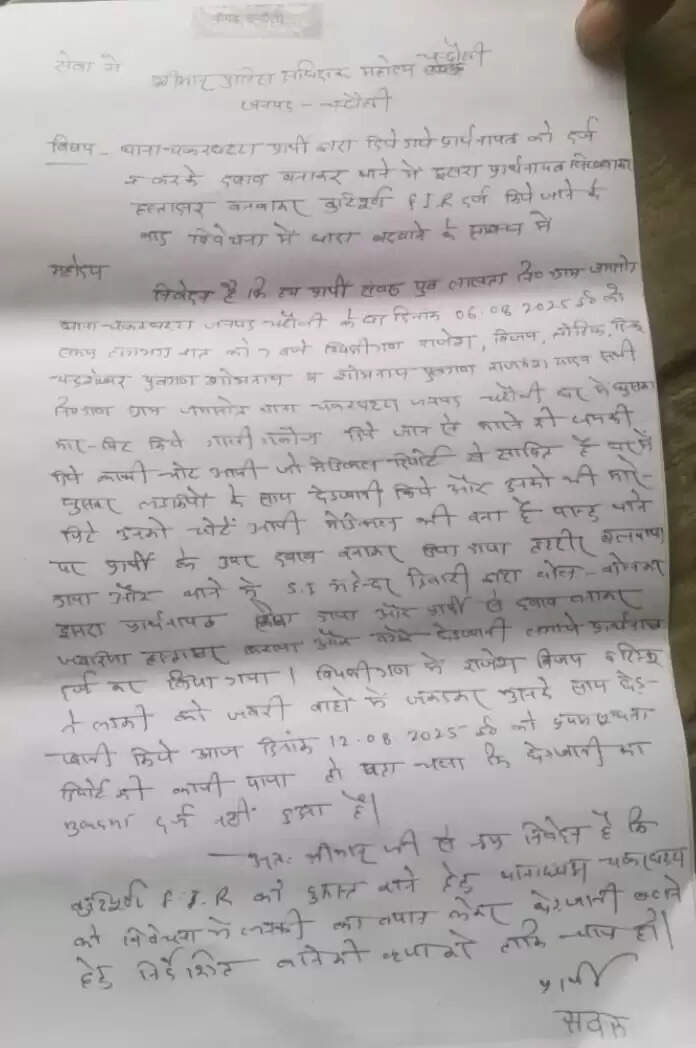 जनपद चन्दौली
सेवा में
श्रीमान पुलिस अधिक्षक महोदय चन्दौली
जनपद - चन्दौली
विषय - थाना-चकरघट्टा प्रार्थी द्वारा दिये गये प्रार्थनापत्र को दर्ज
न करके दबाव बनाकर थाने में दूसरा प्रार्थनापत्र लिखवाकर
हस्ताक्षर बनवाकर त्रुटिपूर्ण F I R दर्ज किये जाने के
बाद विवेचना में धारा बढवाने के सम्बन्ध में
महोदय
निवेदन है कि हम प्रार्थी पुत्र नि० ग्राम
थाना-चकरघट्टा जनपद चन्दौली के है दिनांक 06.08 2025 ई० को
समय लगभग रात को 7 बजे विपक्षीगण राजेश, विजय,
चन्द्रशेखर पुत्रगण शोभनाथ व शोभनाथ पुत्रगण यादव सभी
निवासीगण ग्राम थाना चकरघट्टा जनपद चन्दौली घर में घुसकर
मार-पिट किये गाली गलौज दिये जान से मारने की धमकी
दिये काफी चोट आयी जो मेडिकल रिपोर्ट से साबित है घर में
घुसकर लडकियों के साथ छेडखानी किये और उनको भी मारे-
पिटे उनको चोटें आयी मेडिकल भी बना है परन्तु थाने
पर प्रार्थी के उपर दबाव बनाकर तहरीर बदलवाया
गया और थाने के S.I महेन्द्र तिवारी द्वारा बोल-बोलकर
दूसरा प्रार्थनापत्र लिखा गया और प्रार्थी से दबाव बनाकर
हस्ताक्षर कराया और बिना छेडखानी लगाये प्रार्थनापत्र
दर्ज कर लिया गया। विपक्षीगण में राजेश विजय
ने लडकी को जबरी बाहों में जकडकर उनके साथ छेड-
खानी किये आज दिनांक 12.08 2025 ई० को प्रथम सूचना
रिपोर्ट की कापी पाया तो पता चला कि छेडखानी का
मुकदमा दर्ज नहीं हुआ है।
- अतः श्रीमान् जी से नम्र निवेदन है कि
त्रुटिपूर्ण F.I.R को दुरुस्त करने हेतु थानाध्यक्ष चकरघट्टा
को विवेचना में लडकी का बयान लेकर छेडखानी बढाने
हेतु निर्देशित करने की कृपा करे ताकि न्याय हो।
प्रार्थी